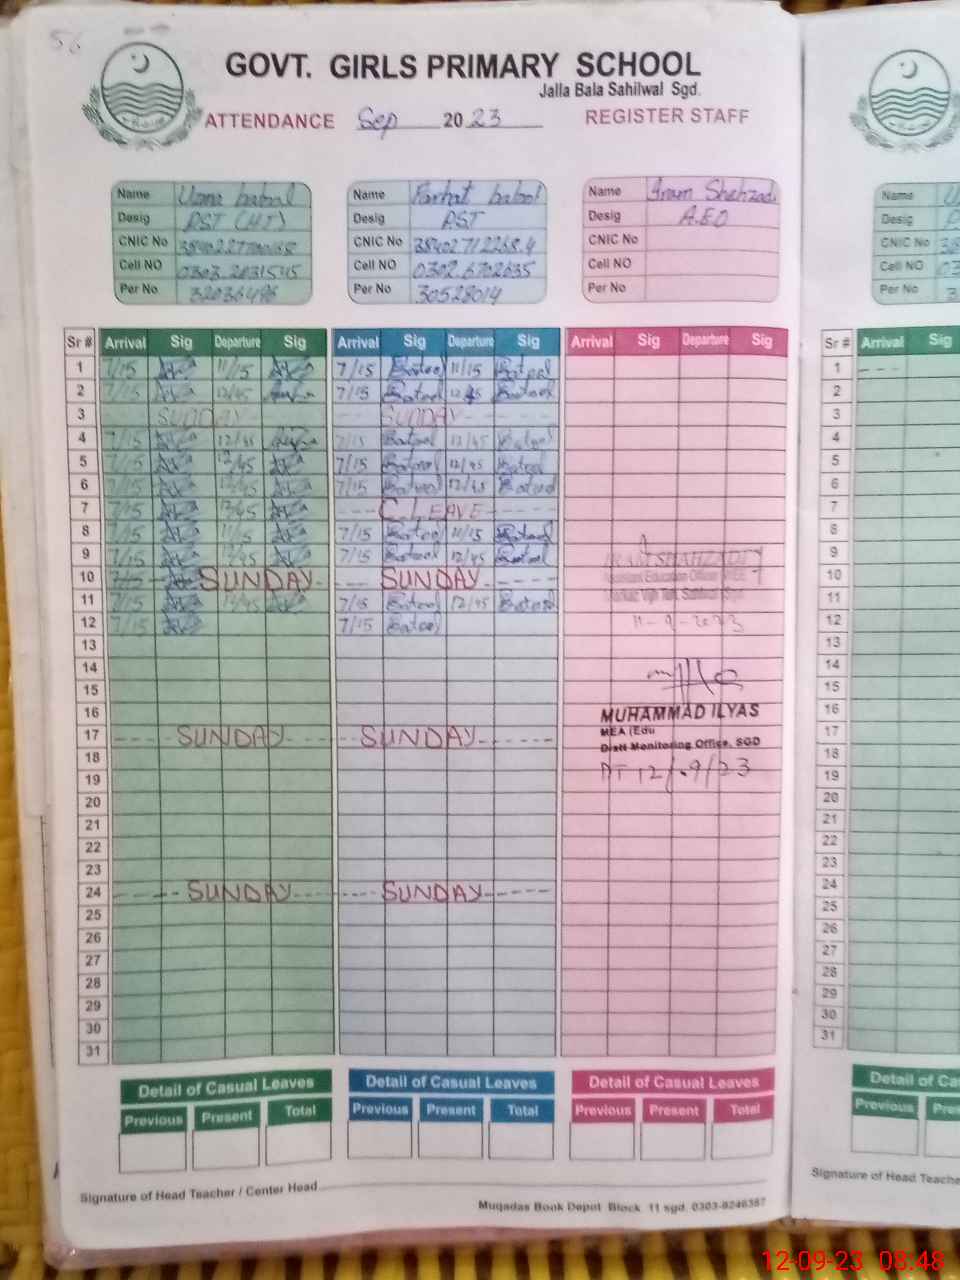 56
GOVT. GIRLS PRIMARY SCHOOL
Jalla Bala Sahilwal Sgd.
ATTENDANCE Sep 2023 REGISTER STAFF
Name Uzma batool Name Farhat batool Name Iram Shahzadi
Desig PST (H.T) Desig PST Desig A.E.O
CNIC No CNIC No 38402712268.4 CNIC No
Cell NO 0303.2031545 Cell NO 0302.6702635 Cell NO
Per No 32036496 Per No 30528014 Per No
Sr # Arrival Sig Departure Sig Arrival Sig Departure Sig Arrival Sig Departure Sig
1 7/15 11/15 7/15 Batool 11/15 Batool
2 7/15 12/45 7/15 Batool 12/45 Batool
3 SUNDAY SUNDAY
4 7/15 12/45 7/15 Batool 12/45 Batool
5 7/15 12/45 7/15 Batool 12/45 Batool
6 7/15 12/45 7/15 Batool 12/45 Batool
7 7/15 12/45 C.LEAVE
8 7/15 11/15 7/15 Batool 11/15 Batool
9 7/15 12/45 7/15 Batool 12/45 Batool IRAM SHAHZADI
10 7/15 SUNDAY SUNDAY Assistant Education Officer
11 7/15 12/45 7/15 Batool 12/45 Batool
12 7/15 7/15 Batool 11-9-2023
13
14
15
16 MUHAMMAD ILYAS
17 SUNDAY SUNDAY MEA (Edu
18 Distt Monitoring Office, SGD
19 DT 12/.9/23
20
21
22
23
24 SUNDAY SUNDAY
25
26
27
28
29
30
31
Detail of Casual Leaves Detail of Casual Leaves Detail of Casual Leaves
Previous Present Total Previous Present Total Previous Present Total
Signature of Head Teacher / Center Head
Muqadas Book Depot Block 11 sgd. 0303-8246387
Name
Desig
CNIC No
Cell NO
Per No
Sr # Arrival Sig
1
2
3
4
5
6
7
8
9
10
11
12
13
14
15
16
17
18
19
20
21
22
23
24
25
26
27
28
29
30
31
Detail of Ca
Previous Pres
Signature of Head Teache
12-09-23 08:48